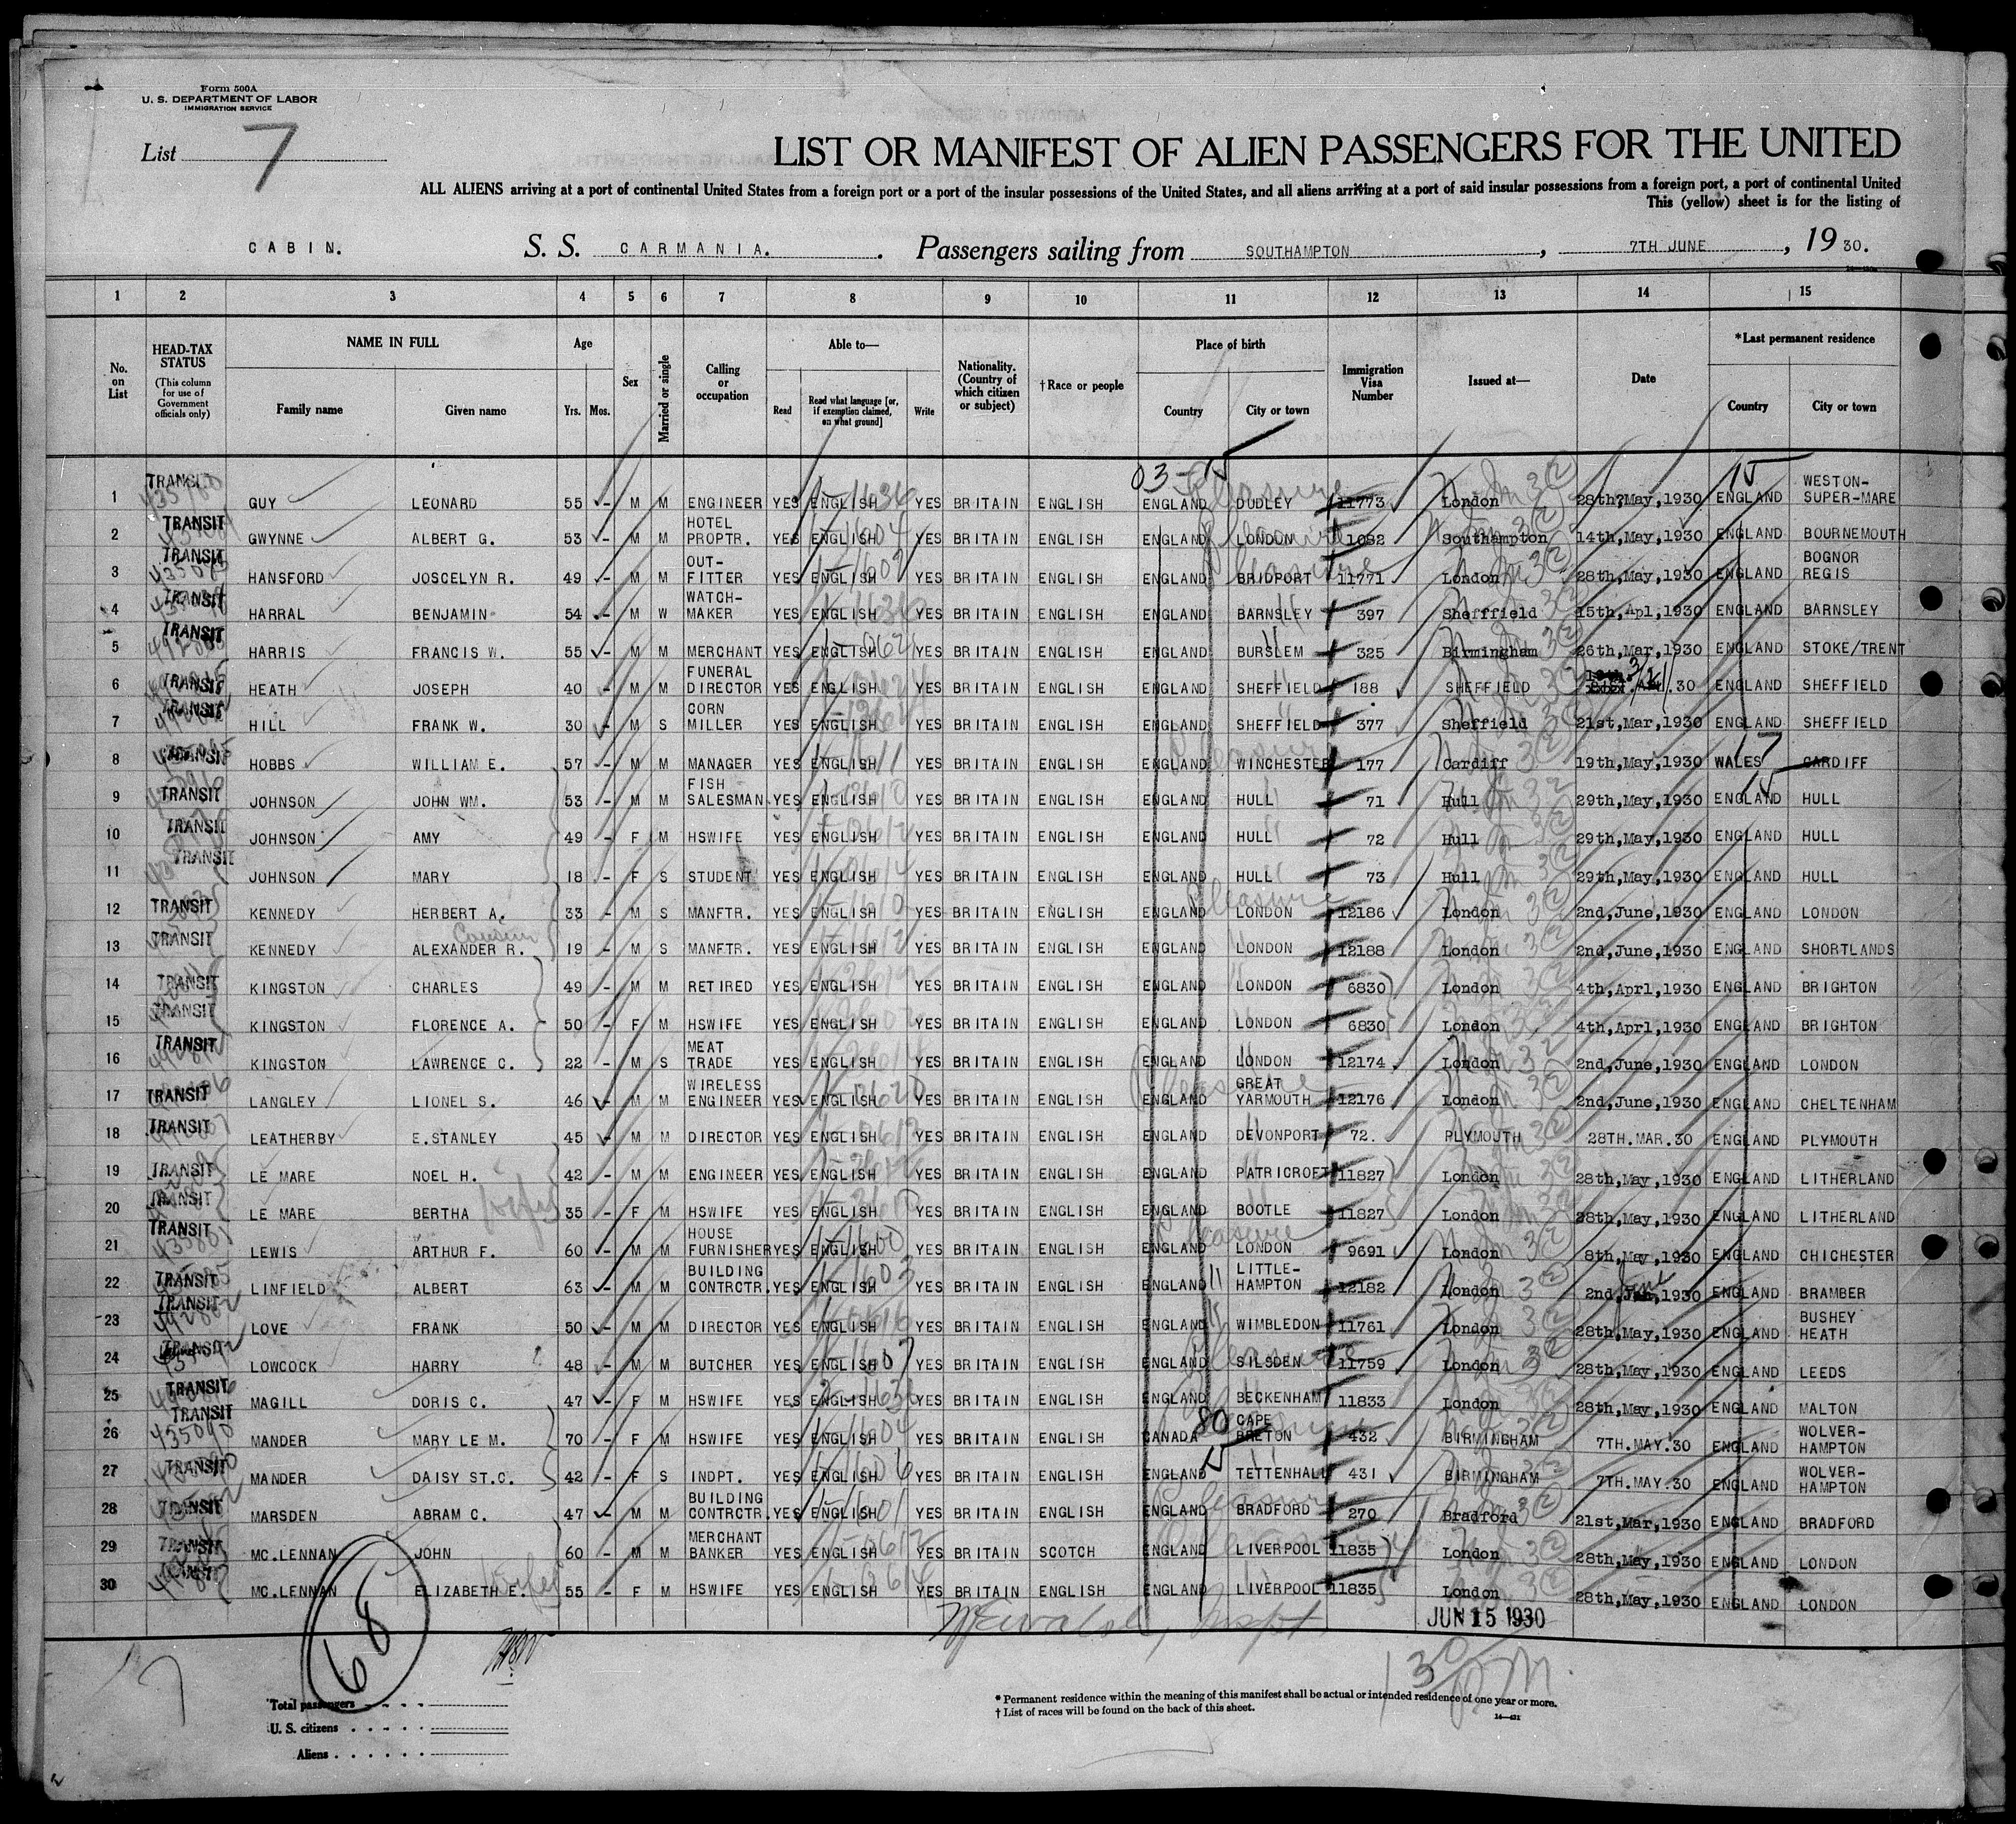 Form 500A
U. S. DEPARTMENT OF LABOR
IMMIGRATION SERVICE
List 7
LIST OR MANIFEST OF ALIEN PASSENGERS FOR THE UNITED
ALL ALIENS arriving at a port of continental United States from a foreign port or a port of the insular possessions of the United States, and all aliens arriving at a port of said insular possessions from a foreign port, a port of continental United
This (yellow) sheet is for the listing of
CABIN. S. S. CARMANIA. Passengers sailing from SOUTHAMPTON, 7TH JUNE, 19 30.
1 2 3 4 5 6 7 8 9 10 11 12 13 14 15
No. on List HEAD-TAX STATUS (This column for use of Government officials only) NAME IN FULL Family name Given name Age Yrs. Mos. Sex Married or single Calling or occupation Able to— Read Read what language [or, if exemption claimed, on what ground] Write Nationality. (Country of which citizen or subject) † Race or people Place of birth Country City or town Immigration Visa Number Issued at— Date *Last permanent residence Country City or town
03-15 15
1 TRANSIT GUY LEONARD 55 - M M ENGINEER YES ENGLISH YES BRITAIN ENGLISH ENGLAND DUDLEY 11773 London 28th,May,1930 ENGLAND WESTON-SUPER-MARE
2 TRANSIT GWYNNE ALBERT G. 53 - M M HOTEL PROPTR. YES ENGLISH YES BRITAIN ENGLISH ENGLAND LONDON 1082 Southampton 14th,May,1930 ENGLAND BOURNEMOUTH
3 TRANSIT HANSFORD JOSCELYN R. 49 - M M OUT-FITTER YES ENGLISH YES BRITAIN ENGLISH ENGLAND BRIDPORT 11771 London 28th,May,1930 ENGLAND BOGNOR REGIS
4 TRANSIT HARRAL BENJAMIN 54 - M W WATCH-MAKER YES ENGLISH YES BRITAIN ENGLISH ENGLAND BARNSLEY 397 Sheffield 15th,Apl,1930 ENGLAND BARNSLEY
5 TRANSIT HARRIS FRANCIS W. 55 - M M MERCHANT YES ENGLISH YES BRITAIN ENGLISH ENGLAND BURSLEM 325 Birmingham 26th,Mar,1930 ENGLAND STOKE/TRENT
6 TRANSIT HEATH JOSEPH 40 - M M FUNERAL DIRECTOR YES ENGLISH YES BRITAIN ENGLISH ENGLAND SHEFFIELD 188 SHEFFIELD .30 ENGLAND SHEFFIELD
7 TRANSIT HILL FRANK W. 30 - M S CORN MILLER YES ENGLISH YES BRITAIN ENGLISH ENGLAND SHEFFIELD 377 Sheffield 21st,Mar,1930 ENGLAND SHEFFIELD
8 TRANSIT HOBBS WILLIAM E. 57 - M M MANAGER YES ENGLISH YES BRITAIN ENGLISH ENGLAND WINCHESTER 177 Cardiff 19th,May,1930 WALES 17 CARDIFF
9 TRANSIT JOHNSON JOHN WM. 53 - M M FISH SALESMAN. YES ENGLISH YES BRITAIN ENGLISH ENGLAND HULL 71 Hull 29th,May,1930 ENGLAND 15 HULL
10 TRANSIT JOHNSON AMY 49 - F M HSWIFE YES ENGLISH YES BRITAIN ENGLISH ENGLAND HULL 72 Hull 29th,May,1930 ENGLAND HULL
11 TRANSIT JOHNSON MARY 18 - F S STUDENT YES ENGLISH YES BRITAIN ENGLISH ENGLAND HULL 73 Hull 29th,May,1930 ENGLAND HULL
12 TRANSIT KENNEDY HERBERT A. 33 - M S MANFTR. YES ENGLISH YES BRITAIN ENGLISH ENGLAND LONDON 12186 London 2nd,June,1930 ENGLAND LONDON
Cousin
13 TRANSIT KENNEDY ALEXANDER R. 19 - M S MANFTR. YES ENGLISH YES BRITAIN ENGLISH ENGLAND LONDON 12188 London 2nd,June,1930 ENGLAND SHORTLANDS
14 TRANSIT KINGSTON CHARLES 49 - M M RETIRED YES ENGLISH YES BRITAIN ENGLISH ENGLAND LONDON 6830 London 4th,Aprl,1930 ENGLAND BRIGHTON
15 TRANSIT KINGSTON FLORENCE A. 50 - F M HSWIFE YES ENGLISH YES BRITAIN ENGLISH ENGLAND LONDON 6830 London 4th,Aprl,1930 ENGLAND BRIGHTON
16 TRANSIT KINGSTON LAWRENCE C. 22 - M S MEAT TRADE YES ENGLISH YES BRITAIN ENGLISH ENGLAND LONDON 12174 London 2nd,June,1930 ENGLAND LONDON
17 TRANSIT LANGLEY LIONEL S. 46 - M M WIRELESS ENGINEER YES ENGLISH YES BRITAIN ENGLISH ENGLAND GREAT YARMOUTH 12176 London 2nd,June,1930 ENGLAND CHELTENHAM
18 TRANSIT LEATHERBY E.STANLEY 45 - M M DIRECTOR YES ENGLISH YES BRITAIN ENGLISH ENGLAND DEVONPORT 72. PLYMOUTH 28TH.MAR.30 ENGLAND PLYMOUTH
19 TRANSIT LE MARE NOEL H. 42 - M M ENGINEER YES ENGLISH YES BRITAIN ENGLISH ENGLAND PATRICROFT 11827 London 28th,May,1930 ENGLAND LITHERLAND
20 TRANSIT LE MARE BERTHA Wife 35 - F M HSWIFE YES ENGLISH YES BRITAIN ENGLISH ENGLAND BOOTLE 11827 London 28th,May,1930 ENGLAND LITHERLAND
21 TRANSIT LEWIS ARTHUR F. 60 - M M HOUSE FURNISHER YES ENGLISH YES BRITAIN ENGLISH ENGLAND LONDON 9691 London 8th,May,1930 ENGLAND CHICHESTER
22 TRANSIT LINFIELD ALBERT 63 - M M BUILDING CONTRCTR. YES ENGLISH YES BRITAIN ENGLISH ENGLAND LITTLE-HAMPTON 12182 London 2nd,June,1930 ENGLAND BRAMBER
23 TRANSIT LOVE FRANK 50 - M M DIRECTOR YES ENGLISH YES BRITAIN ENGLISH ENGLAND WIMBLEDON 11761 London 28th,May,1930 ENGLAND BUSHEY HEATH
24 TRANSIT LOWCOCK HARRY 48 - M M BUTCHER YES ENGLISH YES BRITAIN ENGLISH ENGLAND SILSDEN 11759 London 28th,May,1930 ENGLAND LEEDS
25 TRANSIT MAGILL DORIS C. 47 - F M HSWIFE YES ENGLISH YES BRITAIN ENGLISH ENGLAND BECKENHAM 11833 London 28th,May,1930 ENGLAND MALTON
26 TRANSIT MANDER MARY LE M. 70 - F M HSWIFE YES ENGLISH YES BRITAIN ENGLISH CANADA 80 CAPE BRETON 432 BIRMINGHAM 7TH.MAY.30 ENGLAND WOLVER-HAMPTON
27 TRANSIT MANDER DAISY ST.C. 42 - F S INDPT. YES ENGLISH YES BRITAIN ENGLISH ENGLAND 15 TETTENHALL 431 BIRMINGHAM 7TH.MAY.30 ENGLAND WOLVER-HAMPTON
28 TRANSIT MARSDEN ABRAM C. 47 - M M BUILDING CONTRCTR. YES ENGLISH YES BRITAIN ENGLISH ENGLAND BRADFORD 270 Bradford 21st,Mar,1930 ENGLAND BRADFORD
29 TRANSIT MC.LENNAN JOHN 60 - M M MERCHANT BANKER YES ENGLISH YES BRITAIN SCOTCH ENGLAND LIVERPOOL 11835 London 28th,May,1930 ENGLAND LONDON
30 TRANSIT MC.LENNAN ELIZABETH E. Wife 55 - F M HSWIFE YES ENGLISH YES BRITAIN ENGLISH ENGLAND LIVERPOOL 11835 London 28th,May,1930 ENGLAND LONDON
JUN 15 1930
68
130 PM.
Total passengers
U. S. citizens
Aliens
* Permanent residence within the meaning of this manifest shall be actual or intended residence of one year or more.
† List of races will be found on the back of this sheet.